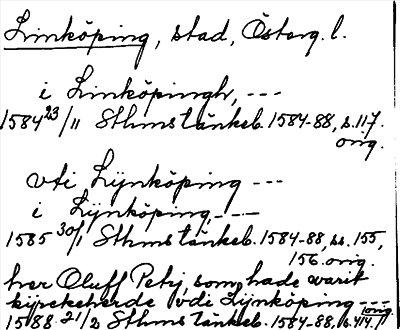 Linköping, stad, Österg. l.
i Linköpingh, ---
1584 23/11 Sthms tänkeb. 1584-88, s. 117.
orig.
vti Lijnköping ---
i Lijnköping, ---
1585 30/1 Sthms tänkeb. 1584-88, ss. 155,
156. orig.
her Oluff Petrj, som hade warit
kijrckeherde vdi Lijnköping ---
1588 21/2 Sthms tänkeb. 1584-88, s. 414. orig.